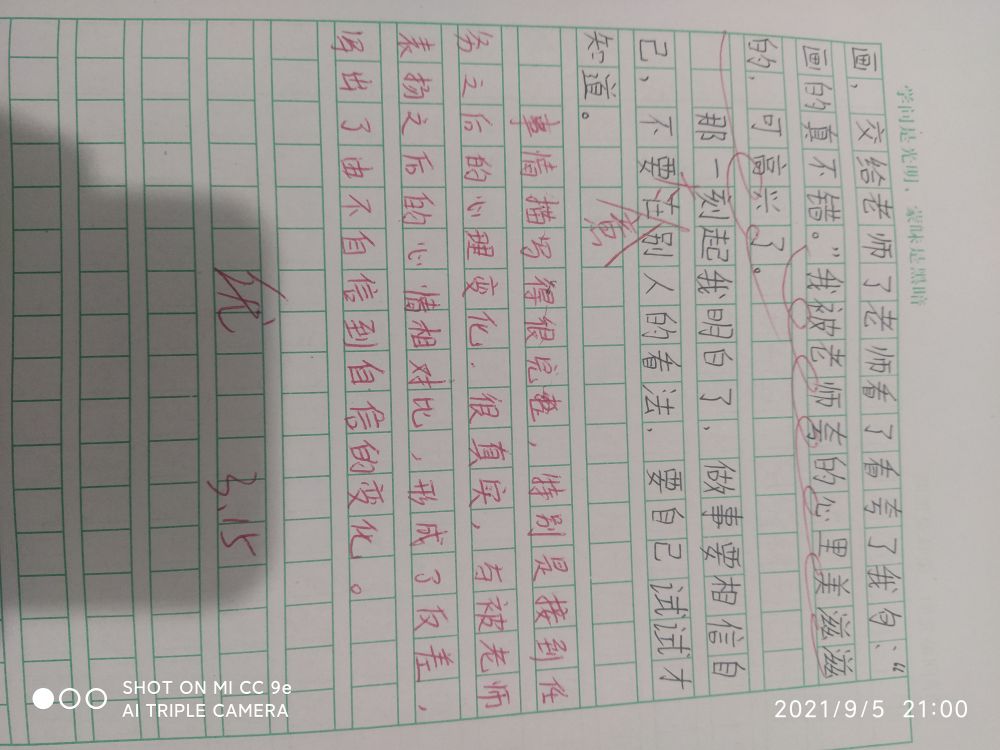 学问是光明，蒙昧是黑暗
画，交给老师了老师看了看夸了我句："
画的真不错。"我被老师夸的心里美滋滋
的，可高兴了。
那一刻起我明白了，做事要相信自
己，不要在别人的看法，要自己试试才
知道。
意
事情描写得很完整，特别是接到任
务之后的心理变化，很真实，与被老师
表扬之后的心情相对比，形成了反差，
写出了由不自信到自信的变化。
优 3.15
SHOT ON MI CC 9e
AI TRIPLE CAMERA
2021/9/5 21:00